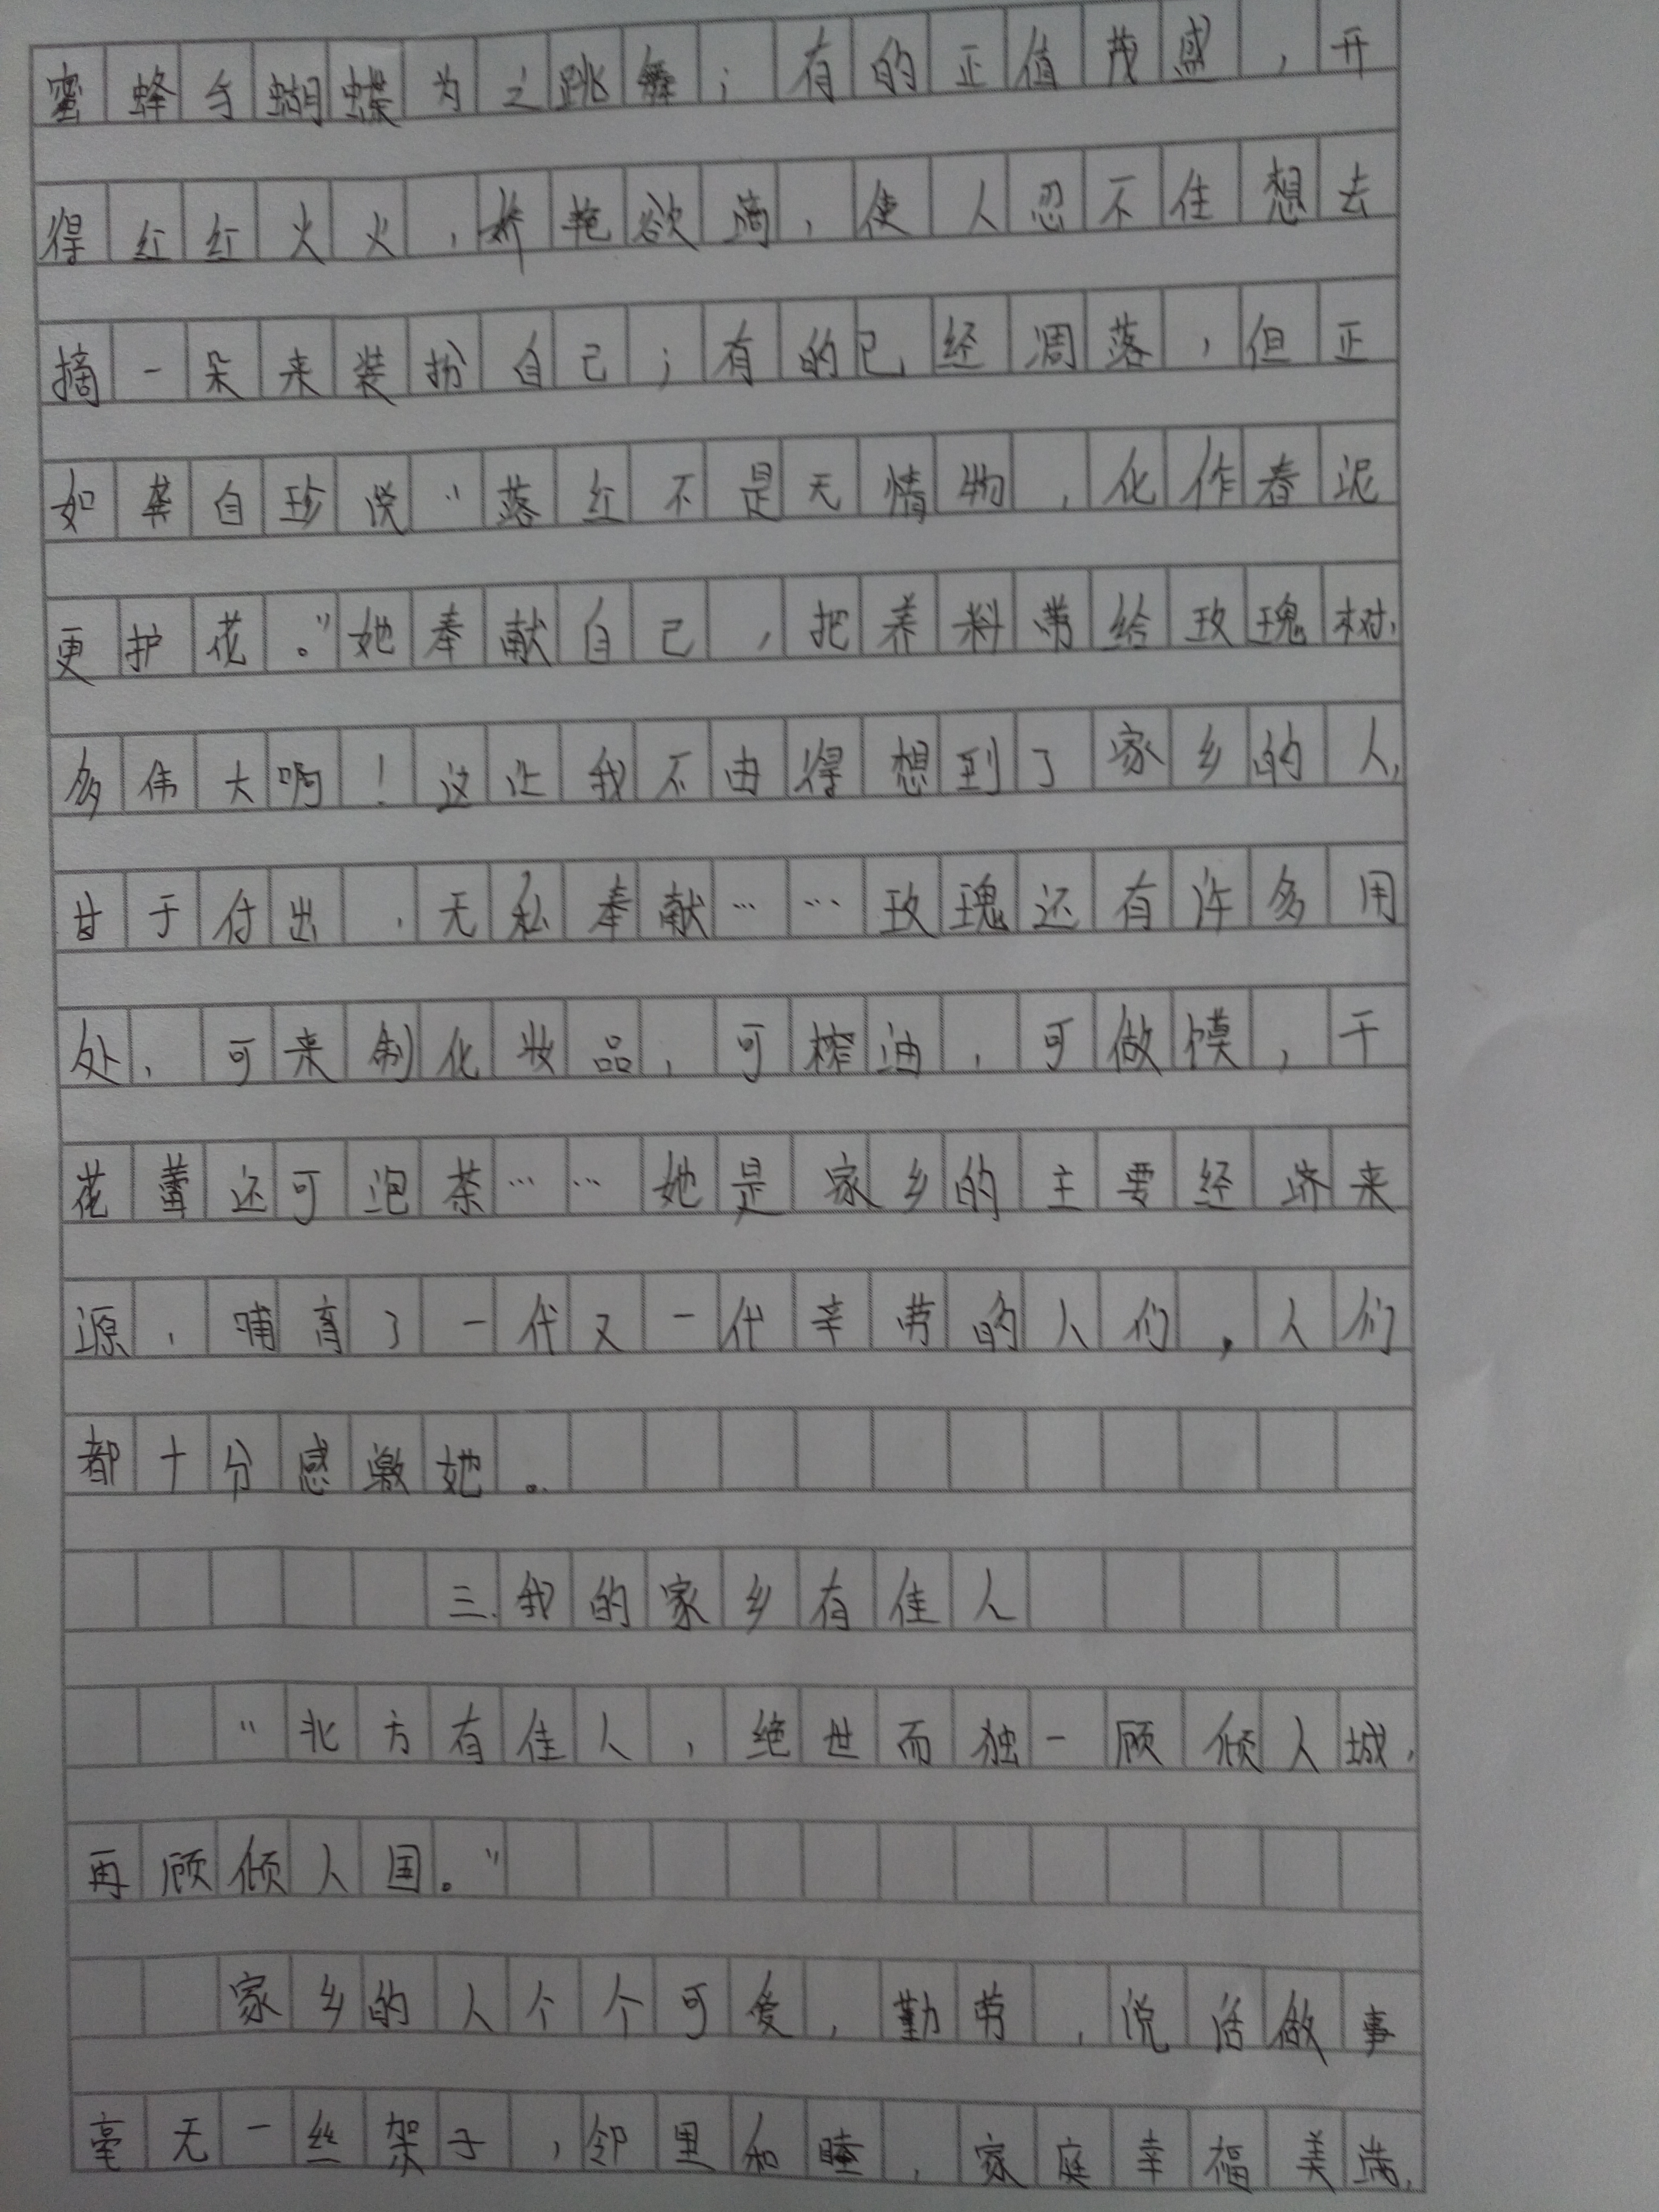 蜜蜂与蝴蝶为之跳舞；有的正值茂盛，开
得红红火火，娇艳欲滴，使人忍不住想去
摘一朵来装扮自己；有的已经凋落，但正
如龚自珍说“落红不是无情物，化作春泥
更护花。”她奉献自己，把养料带给玫瑰树，
多伟大啊！这让我不由得想到了家乡的人，
甘于付出，无私奉献……玫瑰还有许多用
处，可来制化妆品，可榨油，可做馍，干
花蕾还可泡茶……她是家乡的主要经济来
源，哺育了一代又一代辛劳的人们，人们
都十分感激她。
三.我的家乡有佳人
“北方有佳人，绝世而独一顾倾人城，
再顾倾人国。”
家乡的人个个可爱，勤劳，说话做事
毫无一丝架子，邻里和睦，家庭幸福美满，